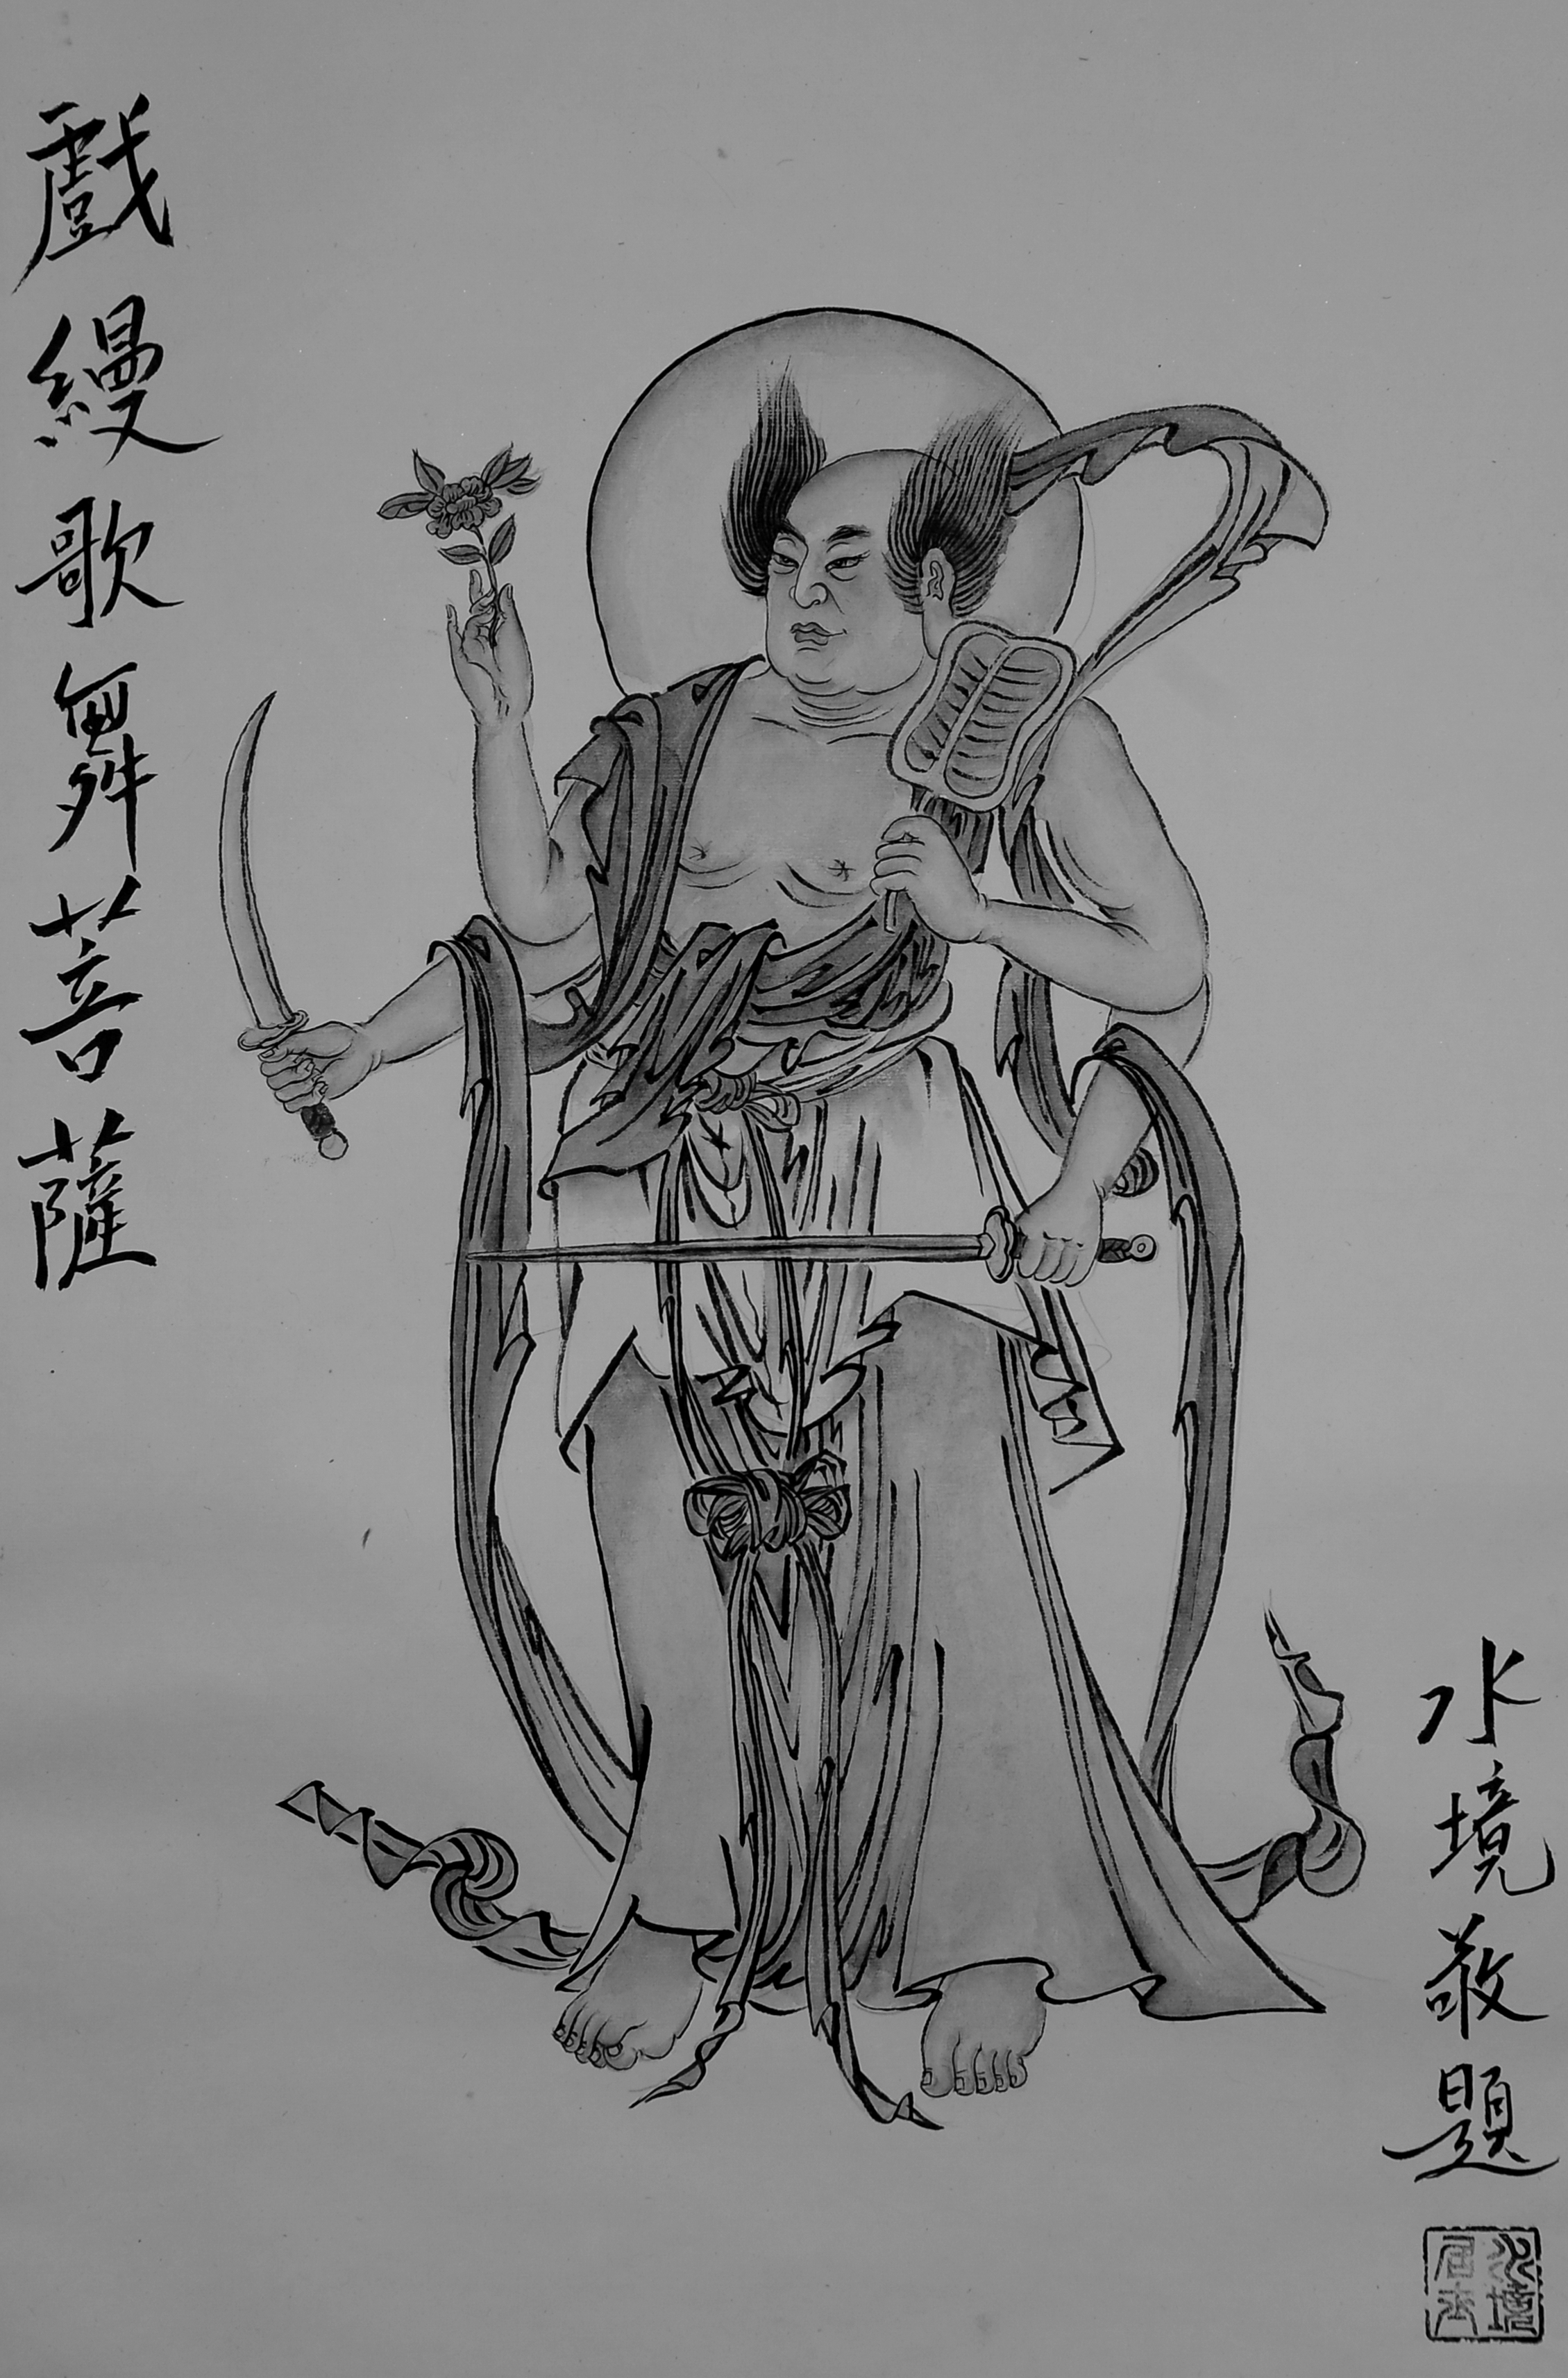 戲縵歌舞菩薩
水境敬題
水境居士